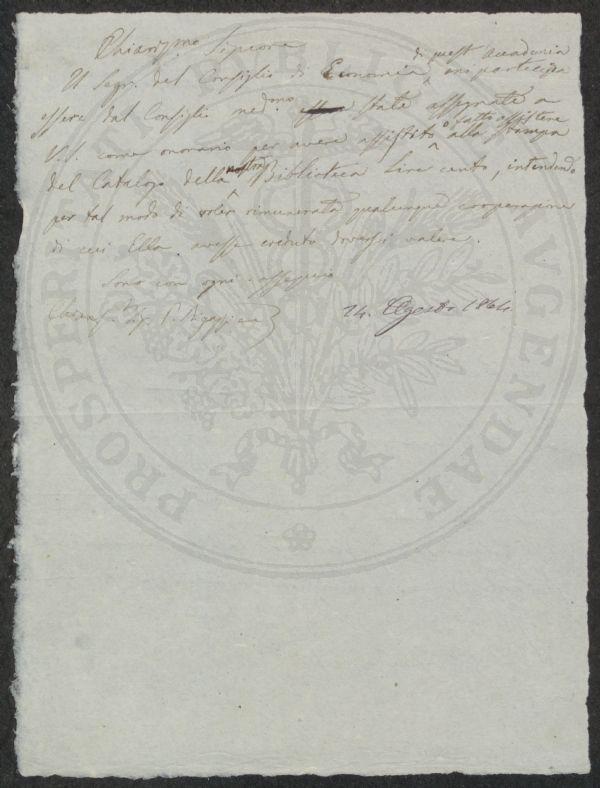 Chiarissmo Signore
di quest'Accademia
Il Segr. del Consiglio di Economia mi partecipa
essere dal Consiglio medmo state assegnate a
V.S. come onorario per avere assistito o fatto assistere alla stampa
del Catalogo della nostra Biblioteca Lire cento, intendendo
per tal modo di voler rimunerata qualunque cooperazione
di cui Ella avesse creduto doversi valere.
Sono con ogni ossequio
14. Agosto 1864
Chiariss. Sig.
PROSPERITATI AUGENDAE